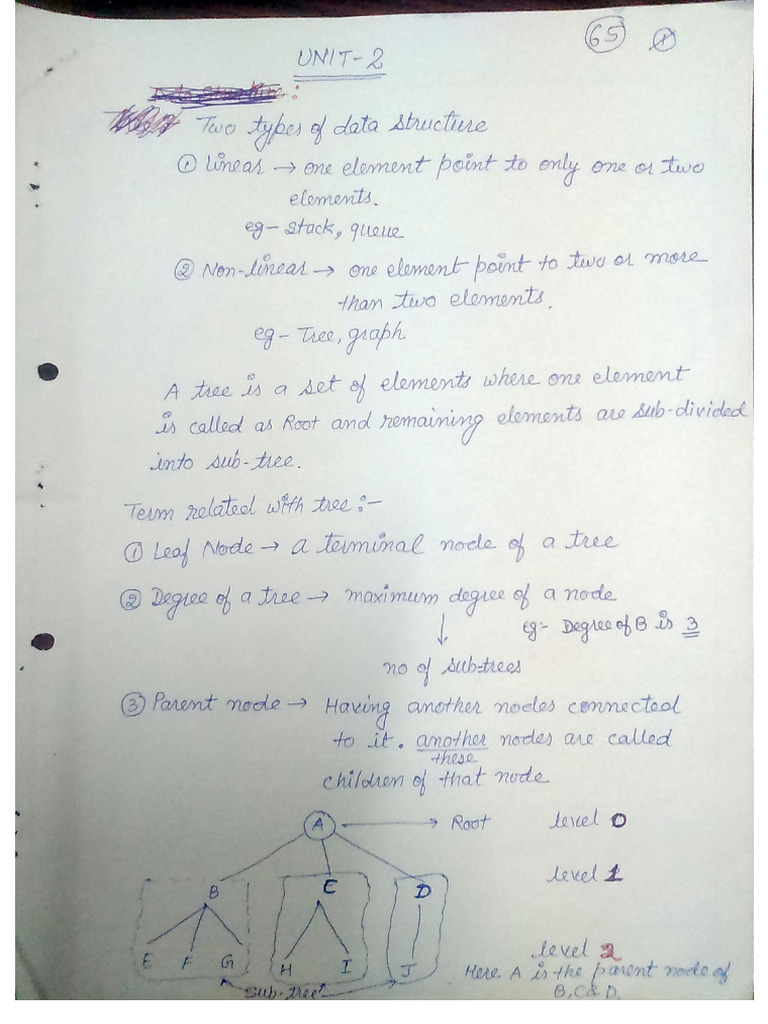 65 1
UNIT-2
:
Two types of data structure
① Linear → one element point to only one or two
elements.
eg- stack, queue
② Non-linear → one element point to two or more
than two elements.
eg- Tree, graph
A tree is a set of elements where one element
is called as Root and remaining elements are sub-divided
into sub-tree.
Term related with tree :-
① Leaf Node → a terminal node of a tree
② Degree of a tree → maximum degree of a node
↓ eg:- Degree of B is 3
no of sub-trees
③ Parent node → Having another nodes connected
to it. another nodes are called
these
children of that node
A ↔ Root level 0
B E D level 1
E F G H I J level 2
Sub-tree
Here A is the parent node of
B, C & D.